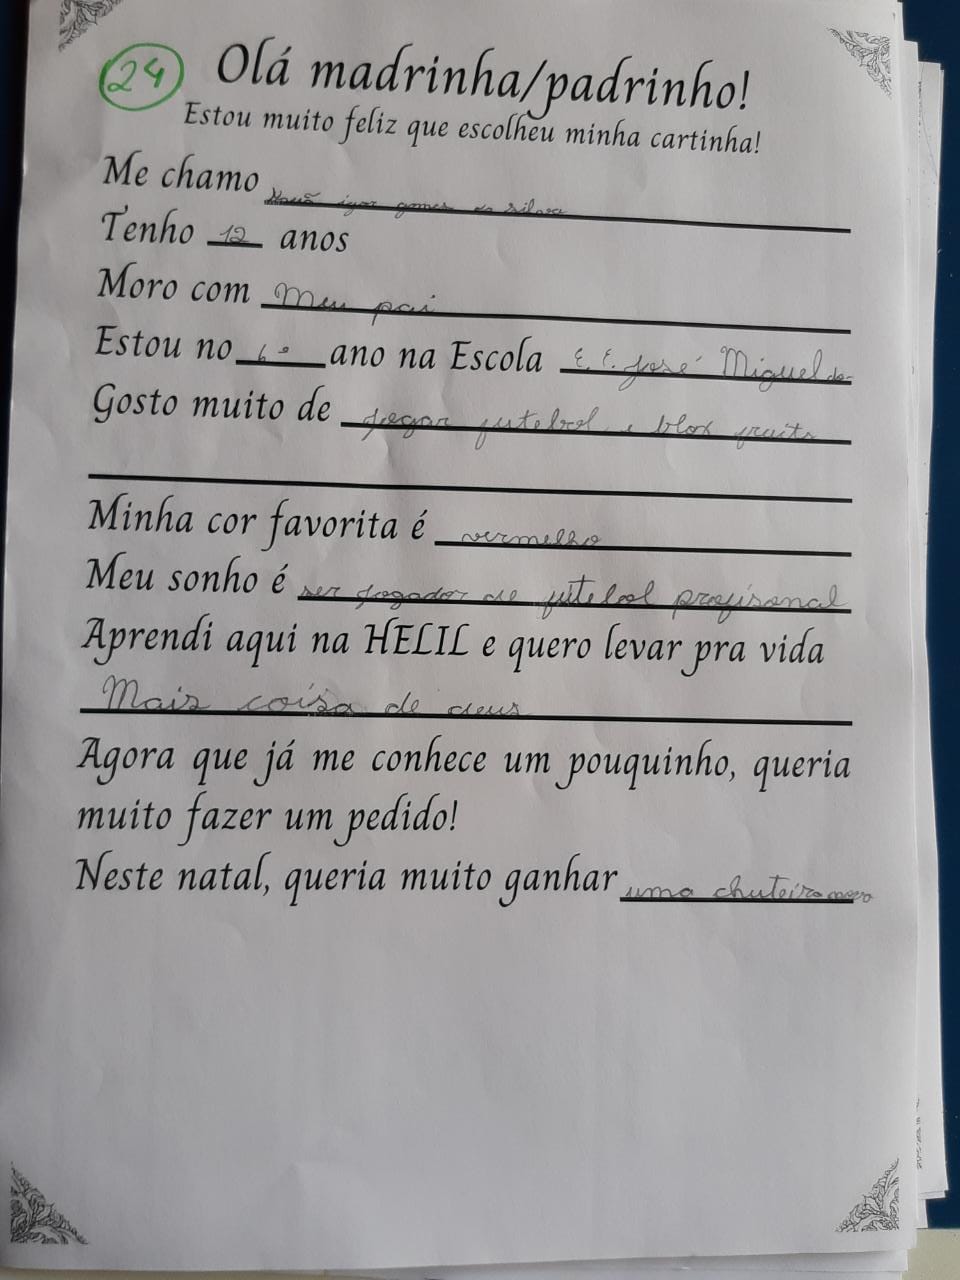 24 Olá madrinha/padrinho!
Estou muito feliz que escolheu minha cartinha!
Me chamo Kauã igor gomes da silva
Tenho 12 anos
Moro com Meu pai
Estou no 6º ano na Escola E. E. José Miguel do
Gosto muito de jogar futebol e blox fruits
Minha cor favorita é vermelho
Meu sonho é ser jogador de futebol profisonal
Aprendi aqui na HELIL e quero levar pra vida
Mais coisa de deus
Agora que já me conhece um pouquinho, queria
muito fazer um pedido!
Neste natal, queria muito ganhar uma chuteira